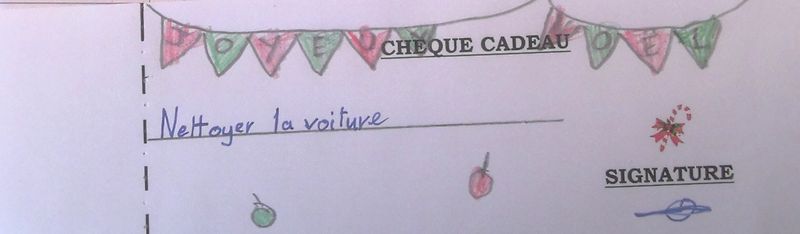 JOYEUX NOEL
CHEQUE CADEAU
Nettoyer la voiture
SIGNATURE